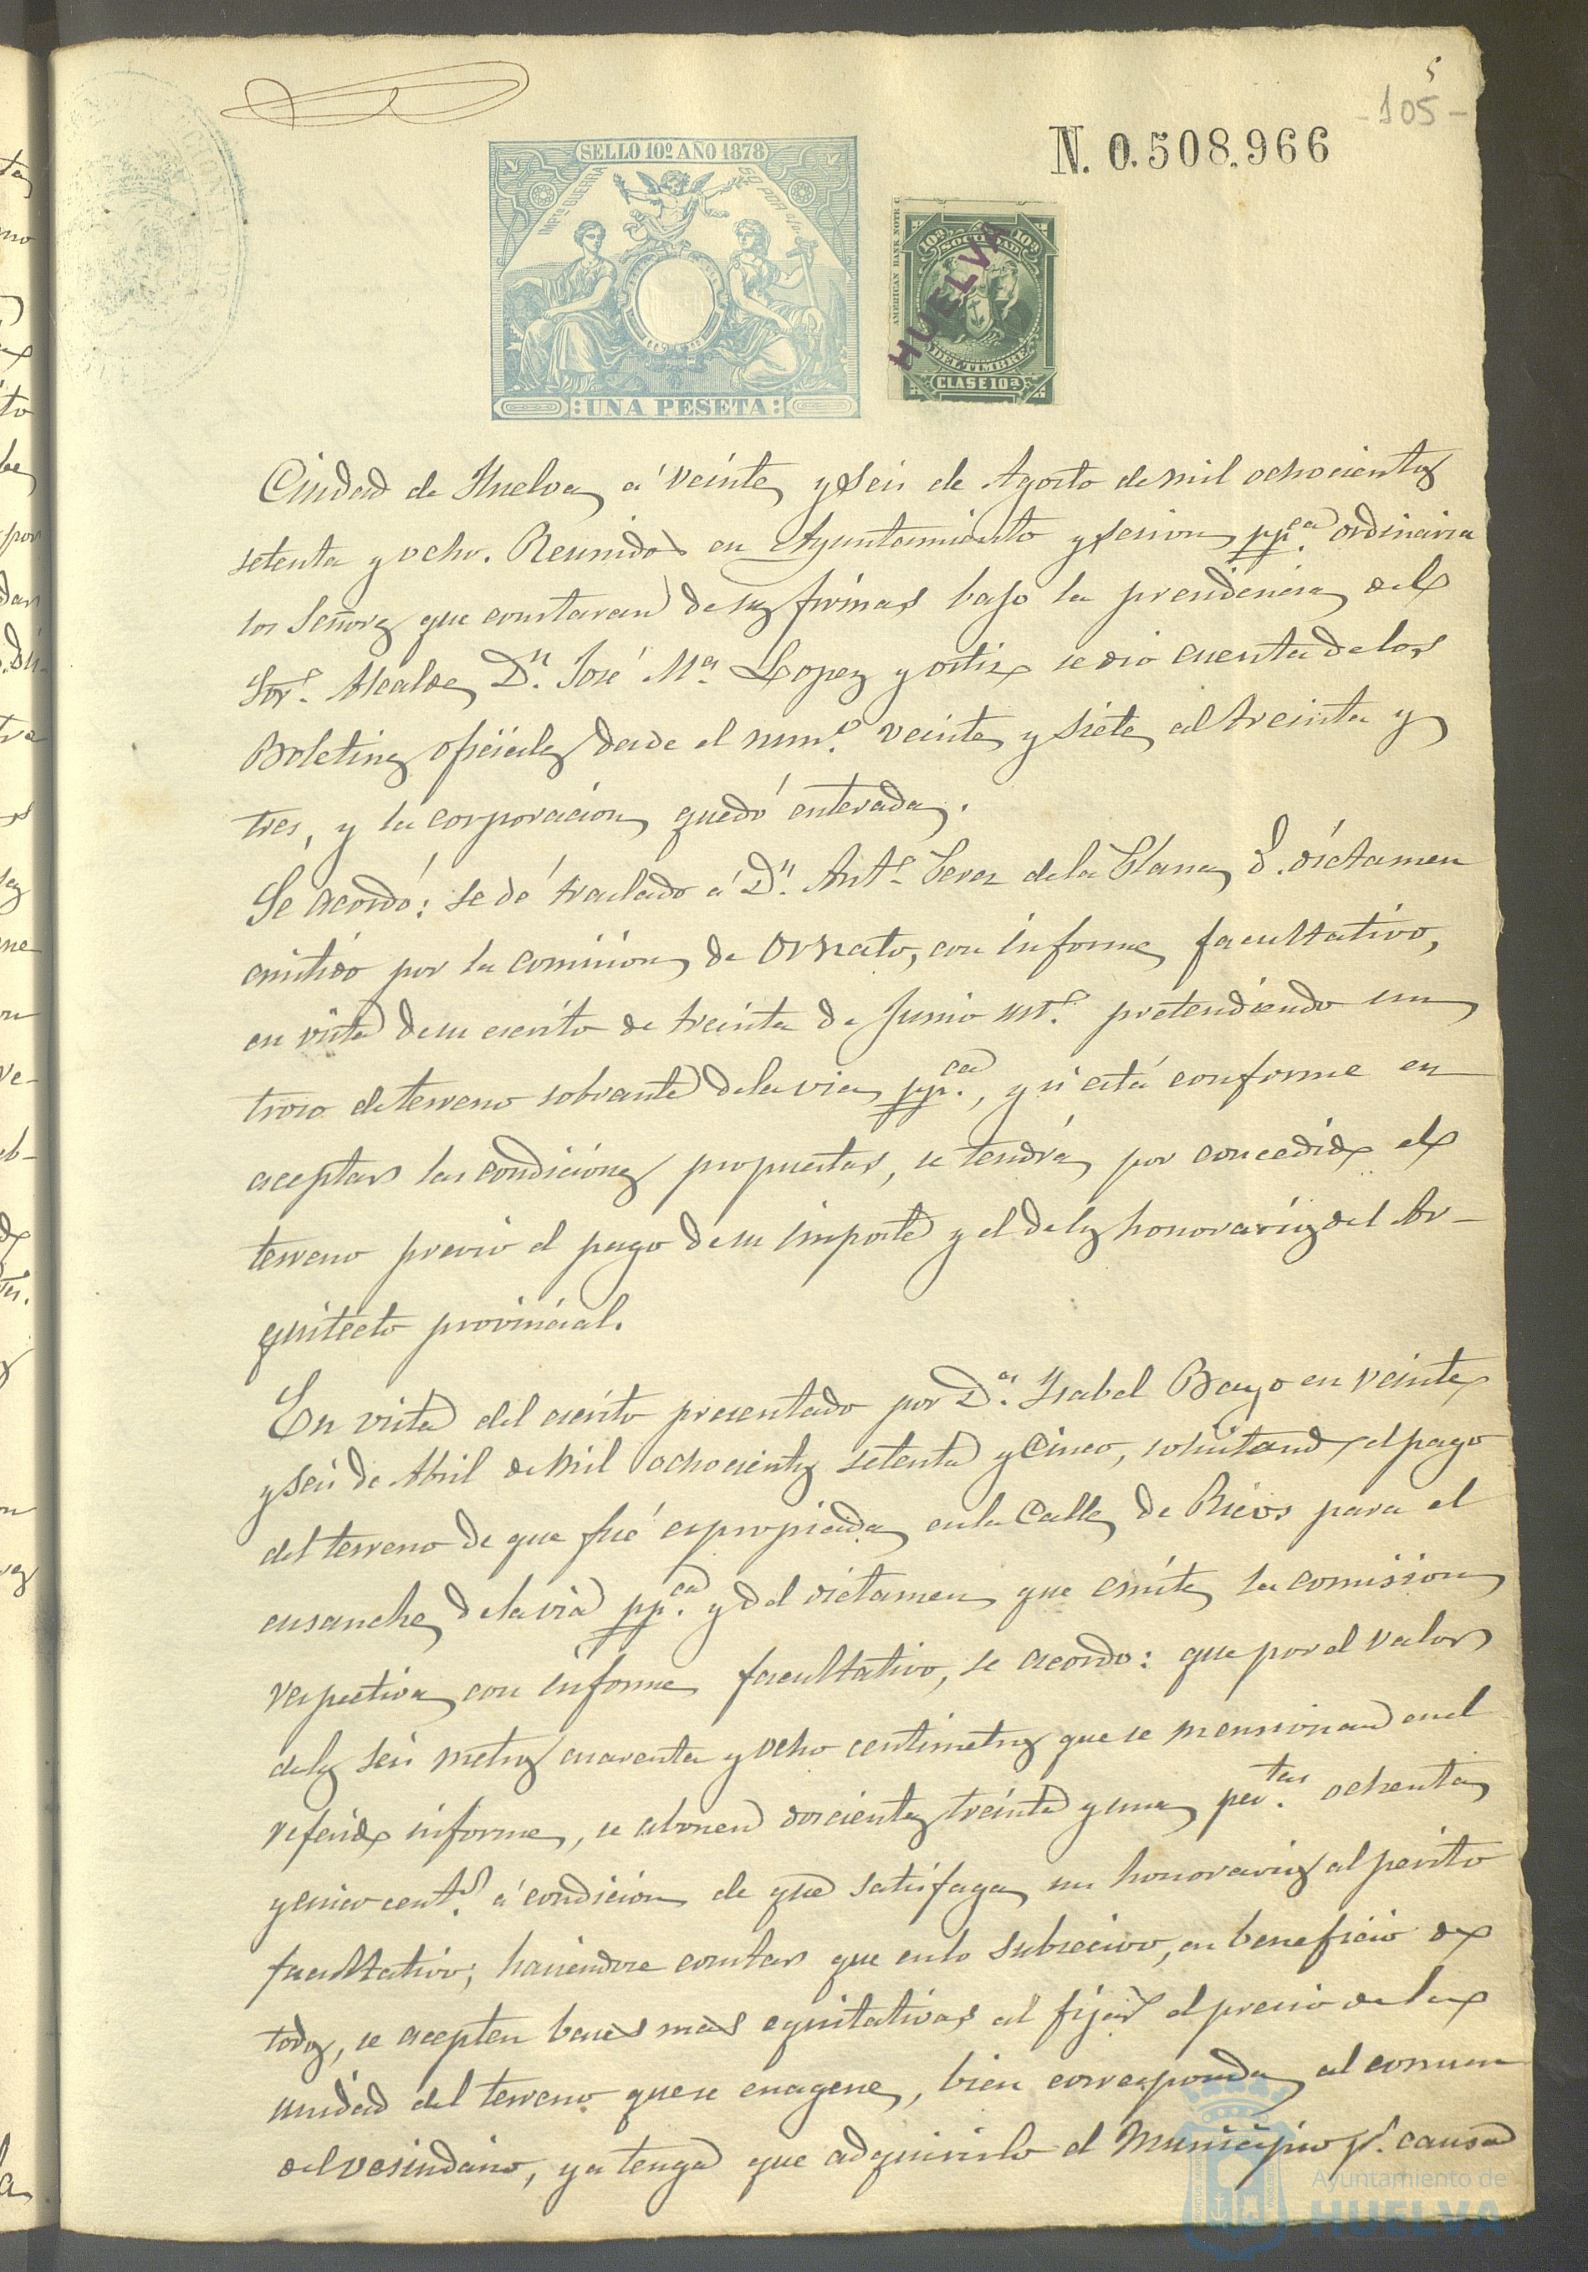 5
-105-
N. 0.508.966
SELLO 10º AÑO 1878
IMPto GUERRA
50 POR %
UNA PESETA
AMERICAN BANK NOTE C
10ª 10ª
SOCIEDAD
DEL TIMBRE
CLASE 10ª
HUELVA
Ciudad de Huelva á veinte y seis de Agosto de mil ochocientos
setenta y ocho. Reunidos en Ayuntamiento y sesion ppca. ordinaria
los Señores que constaran de sus firmas bajo la presidencia del
Sor. Alcalde Dn. José Ma. Lopez y Ortiz se dio cuenta de los
Boletines oficiales desde el numo. veinte y siete al treinta y
tres, y la corporacion quedó enterada.
Se acordó: se dé traslado á Dn. Anto. Perez de la Llana dl. dictamen
emitido por la comision de Ornato, con informe facultativo,
en vista de su escrito de treinta de Junio ult. pretendiendo un
trozo de terreno sobrante de la via ppca., y si está conforme en
aceptar las condiciones propuestas, se tendrá por concedido el
terreno previo el pago de su importe y el de los honorarios del Ar-
quitecto provincial.
En vista del escrito presentado por Da. Ysabel Bayo en veinte
y seis de Abril de mil ochocientos setenta y cinco, solicitando el pago
del terreno de que fué espropiada en la Calle de Ricos para el
ensanche de la via ppca. y del dictamen que emite la comision
respectiva con informe facultativo, se acordo: que por el valor
de los seis metros cuarenta y ocho centimetros que se mensionan en el
referido informe, se abonen doscientas treinta y una pestas. ochenta
y cinco cents. á condicion de que satisfaga sus honorarios al perito
facultativo; haciendose constar que en lo subsecivo, en beneficio de
todos, se acepten bases mas equitativas al fijar el precio de la
unidad del terreno que se enagene, bien corresponda al comun
del vesindario, ya tenga que adquirirlo el Municipio pr. causa
Ayuntamiento de
HUELVA